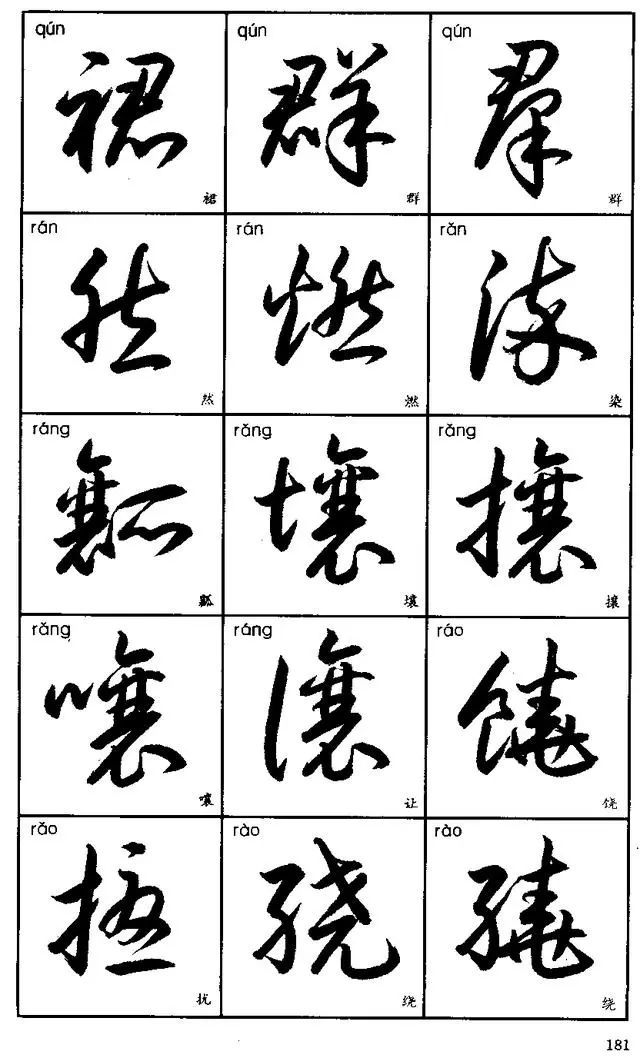 qún qún qún
裙 群 羣
裙 群 群
rán rán rǎn
然 燃 染
然 燃 染
ráng rǎng rǎng
瓤 壤 攘
瓤 壤 攘
rǎng ráng ráo
嚷 讓 饒
嚷 让 饶
rǎo rào rào
擾 绕 繞
扰 绕 绕
181